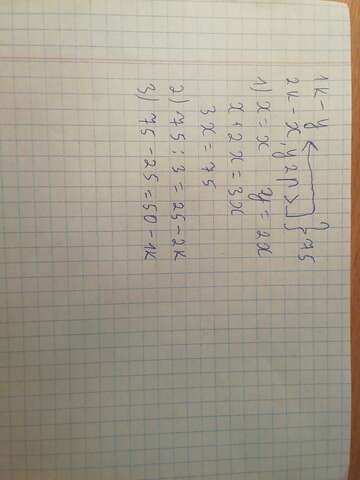 1к - y
2к - x, y 2 р > } 75
1) x = x y = 2x
x + 2x = 3x
3x = 75
2) 75 : 3 = 25 - 2к
3) 75 - 25 = 50 - 1к